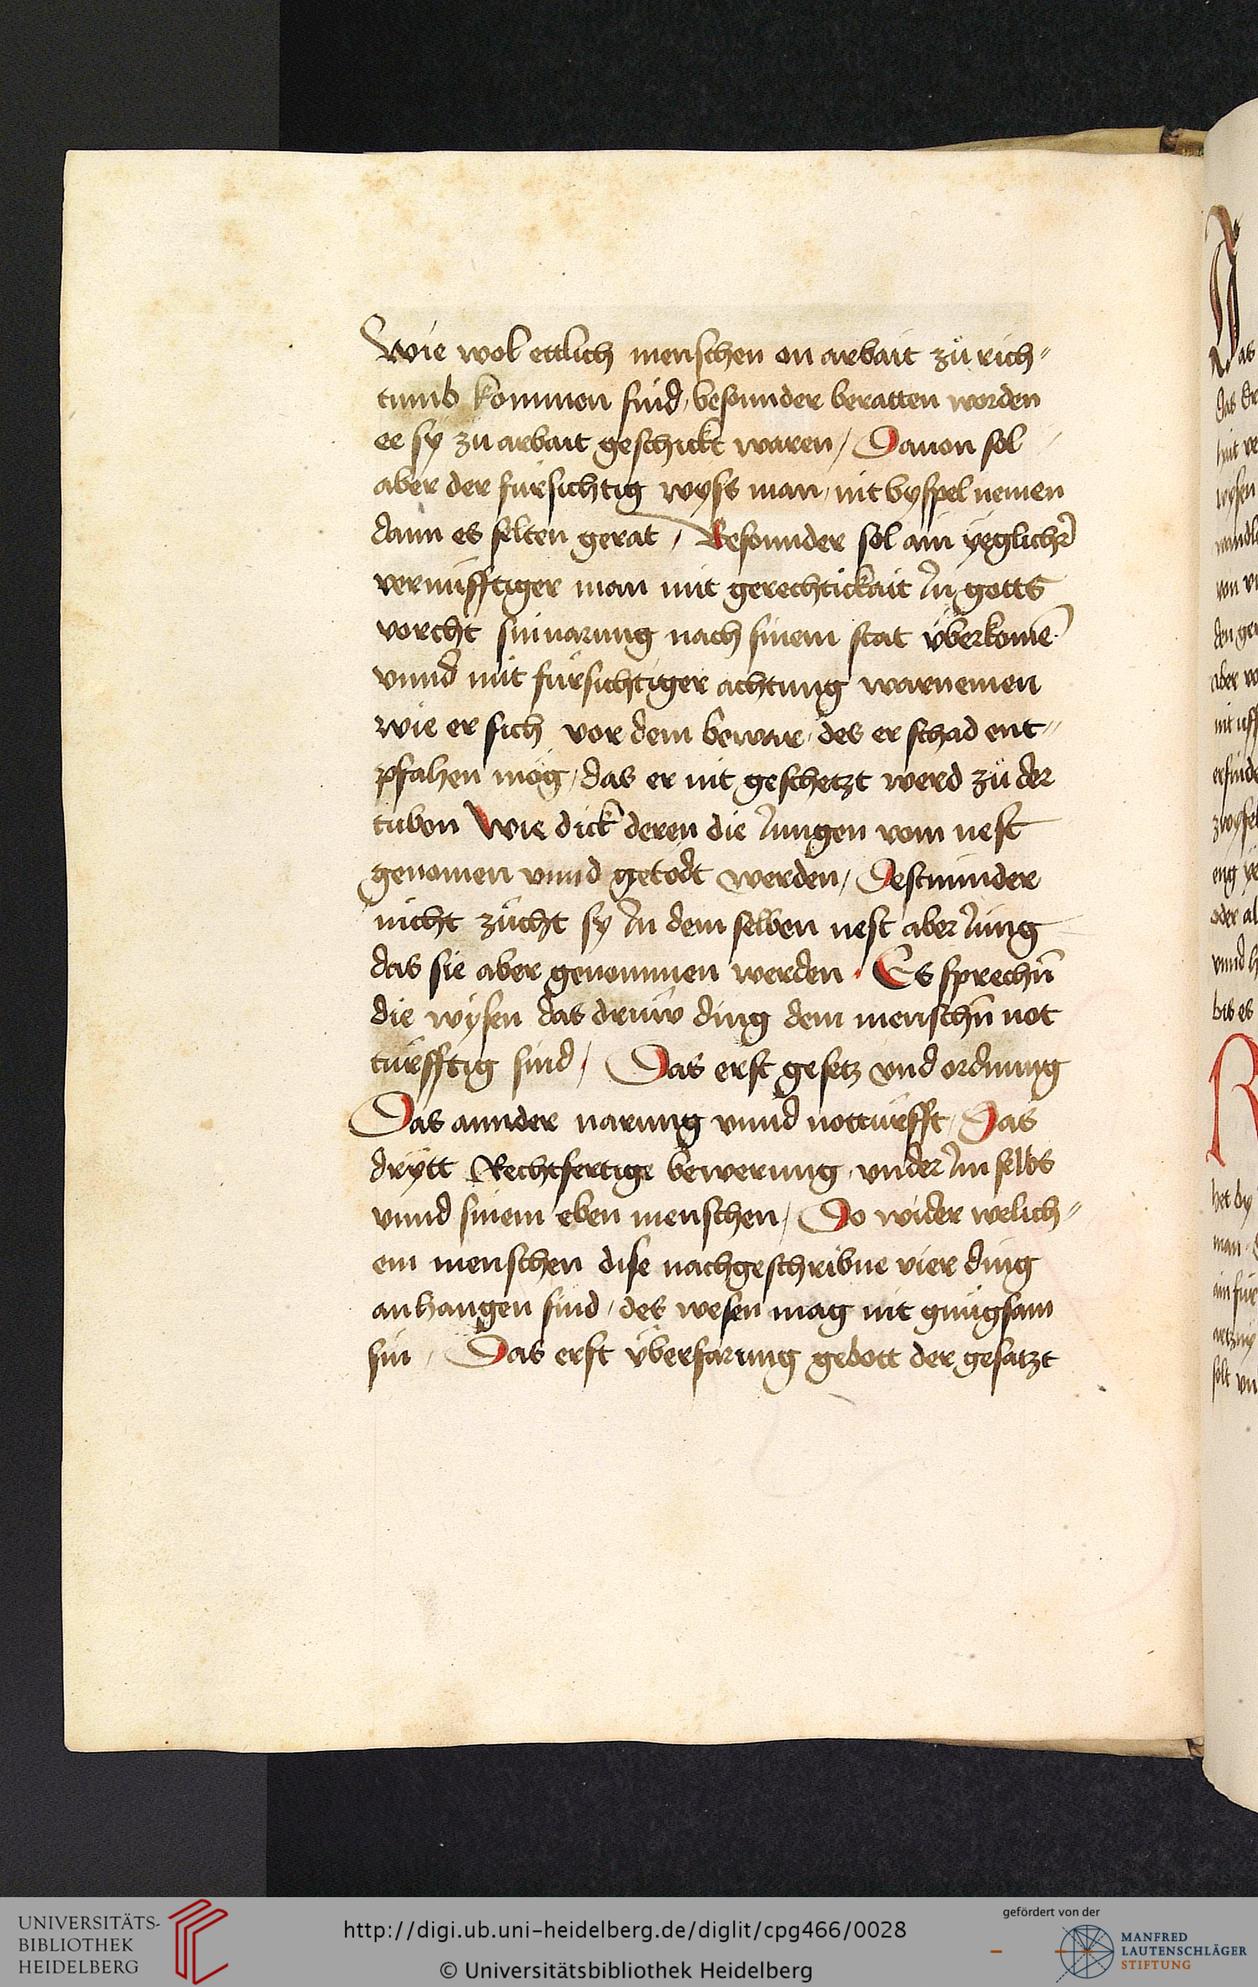 Wie wol ettlich menschen on arbait zů rich=
tumb kommen sind, besonnder beratten worden
ee sy zu arbait geschickt waren / Dauon sol
aber der fürsichtig wyss man, nit byspel nemen
dann es selten gerat / Besonnder sol ain yeglichr̄
vernüfftiger man mit gerechtickait Jn gotts
vorcht sin narung nach sinem stat überkome͂
vnnd mit fürsichtiger achtung warnemen
wie er sich vor dem bewar, des er schad ent=
pfahen mög, das er nit geschetzt werd zů der
tubon Wie dick deren die Jungen vom nest
genomen vnnd getödt werden / Destminder
nicht zücht sy Jn dem selben nest aber Jung
das sie aber genommen werden · Es sprechn̄
die wysen das drüw ding dem menschn̄ not
türfftig sind / Das erst gesetz vnd ordnung
Das annder narung vnnd notturfft / Das
drytt Rechtfertige bewerung, vnder Jm selbs
vnnd sinem eben menschen / Do wider welich=
em menschen dise nachgeschribne vier ding
anhangen sind, des wesen mag nit gnůgsam
sin / Das erst überfarung gebott der gesatzt
UNIVERSITÄTS-
BIBLIOTHEK
HEIDELBERG
http://digi.ub.uni-heidelberg.de/diglit/cpg466/0028
© Universitätsbibliothek Heidelberg
gefördert von der
MANFRED
LAUTENSCHLÄGER
STIFTUNG